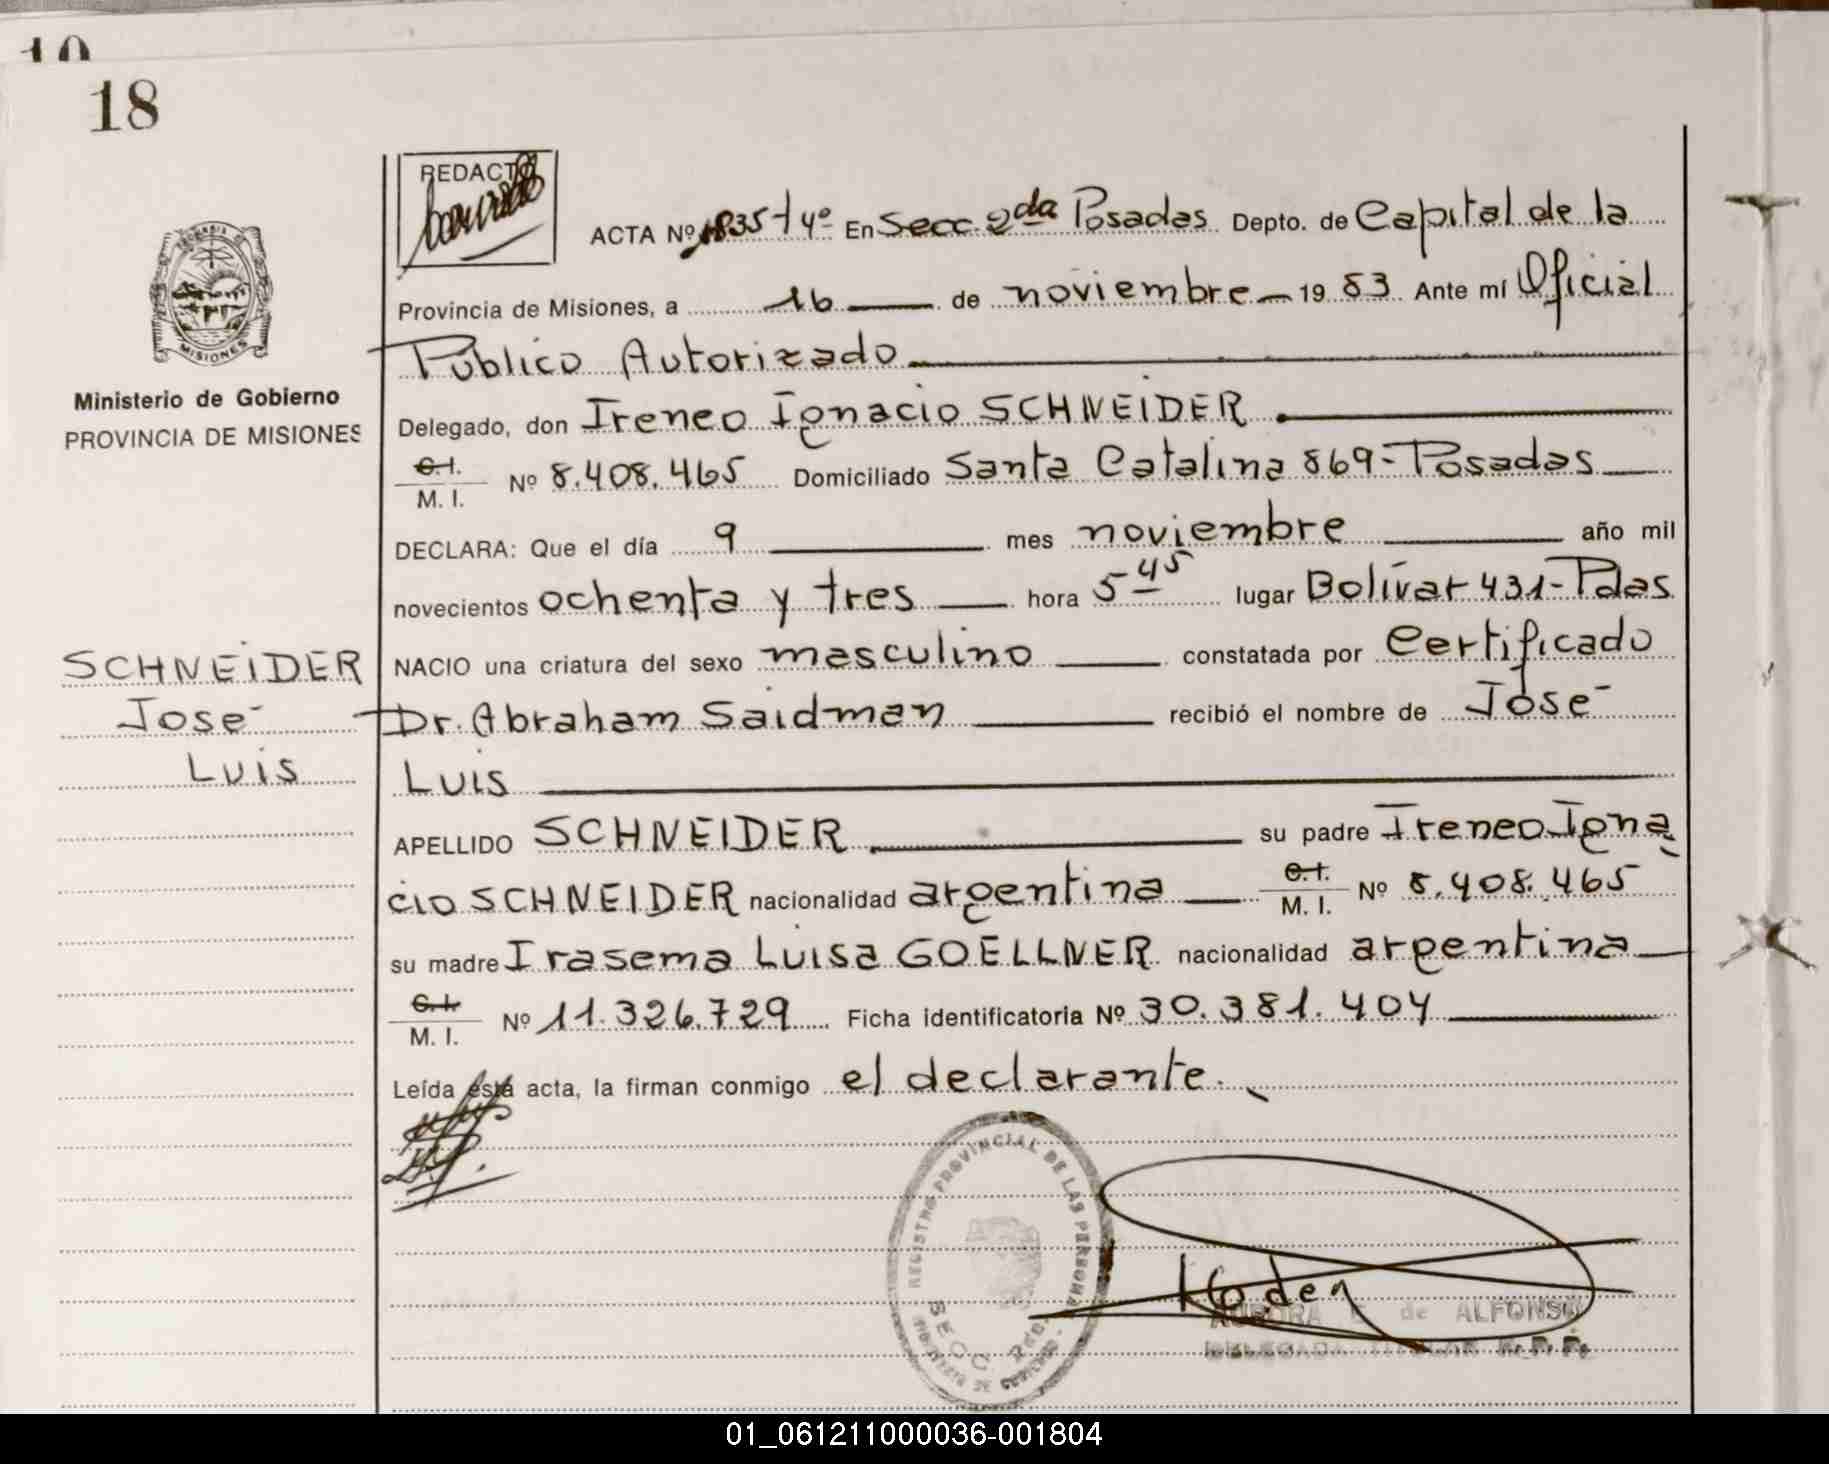 18
REDACTO
ACTA Nº 1835-Tº 4º En Secc. 2da Posadas Depto. de Capital de la
Provincia de Misiones, a 16 de noviembre 19 83 Ante mí Oficial
Público Autorizado
Delegado, don Ireneo Ignacio SCHNEIDER
C.I.
M. I. Nº 8.408.465 Domiciliado Santa Catalina 869-Posadas
DECLARA: Que el día 9 mes noviembre año mil
novecientos ochenta y tres hora 5 45 lugar Bolívar 431-Pdas
NACIO una criatura del sexo masculino constatada por Certificado
Dr. Abraham Saidman recibió el nombre de José
Luis
APELLIDO SCHNEIDER su padre Ireneo Igna
cio SCHNEIDER nacionalidad argentina C.I. M. I. Nº 8.408.465
su madre Irasema Luisa GOELLNER nacionalidad argentina
C.I.
M. I. Nº 11.326.729 Ficha identificatoria Nº 30.381.404
Leída está acta, la firman conmigo el declarante.
MISIONES
Ministerio de Gobierno
PROVINCIA DE MISIONES
SCHNEIDER
José
Luis
REGISTRO PROVINCIAL DE LAS PERSONAS
SECC. 2da.
MINISTERIO DE GOBIERNO
AURORA E. de ALFONSO
DELEGADA TITULAR R.P.P.
01_061211000036-001804